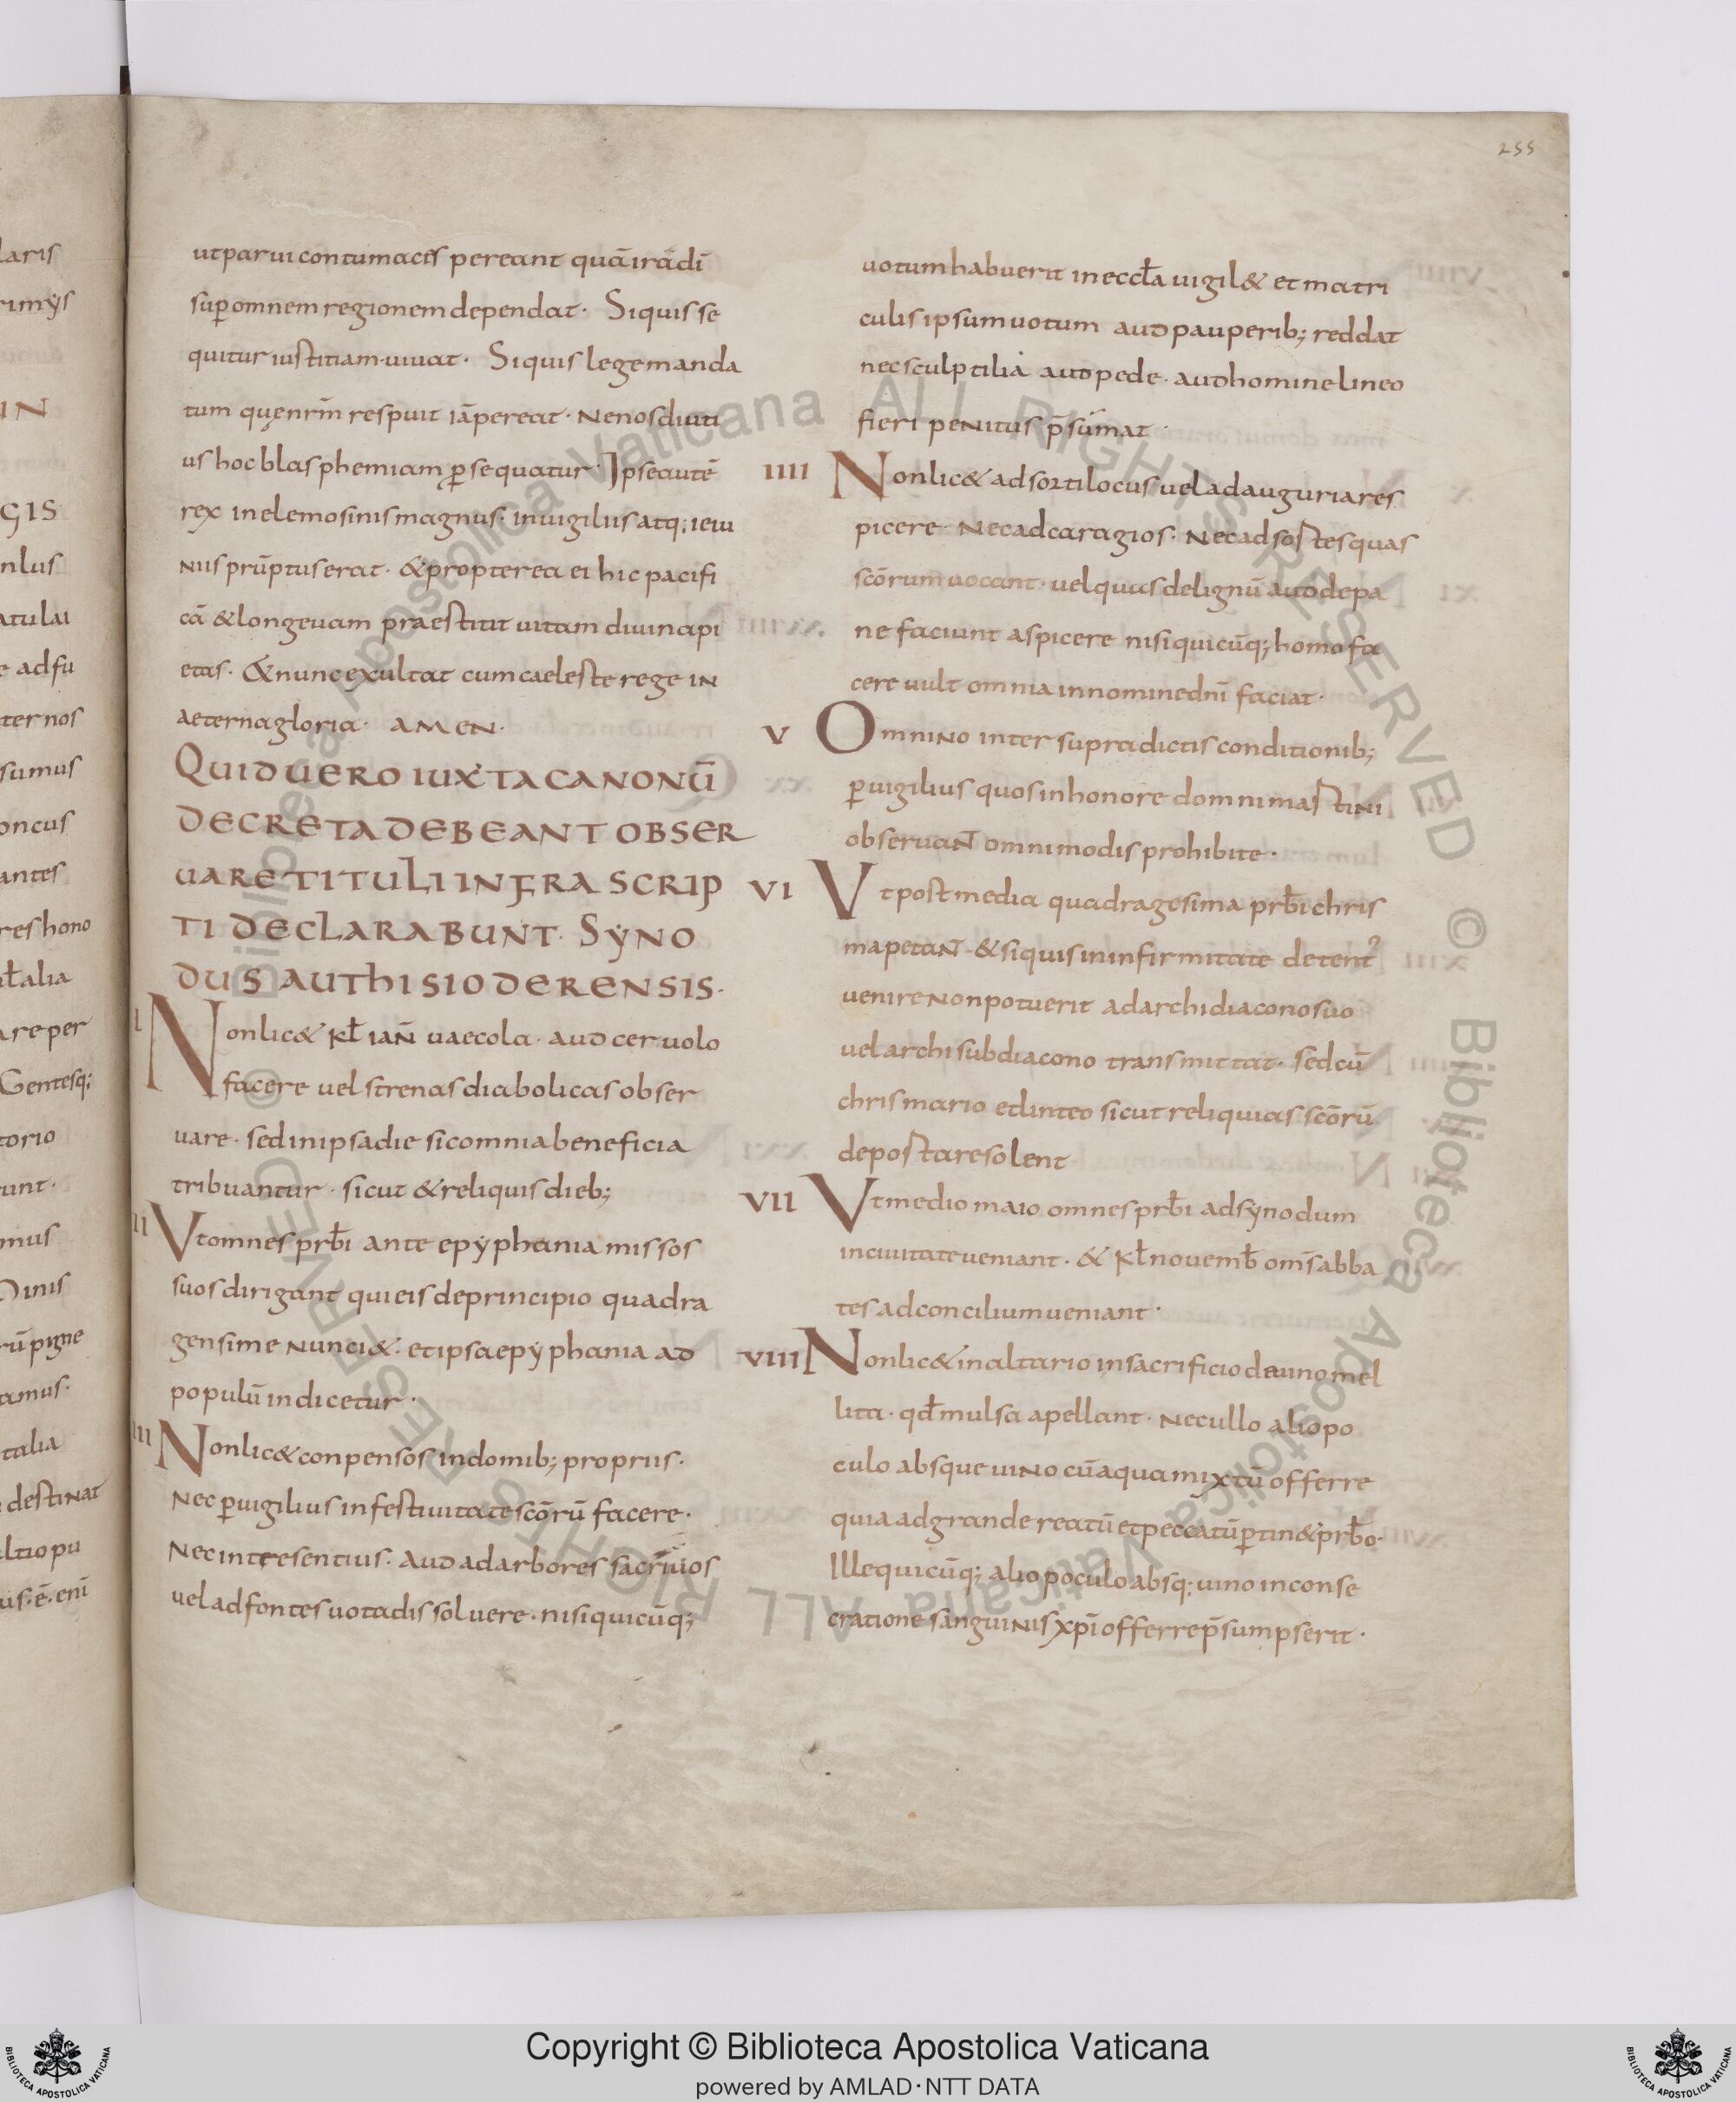 255
ut parui contumaces pereant quā ira dī
suꝑ omnem regionem dependat· Si quis se
quitur iustitiam·uiuat· Si quis lege manda
tum quę nr̄m respuit iā pereat· Ne nos diuti
us hoc blasphemiam ꝑsequatur· Ipse autē
rex in elemosinis magnus· in uigiliis atq; ieiu
niis prūptus erat· & propterea ei hic pacifi
cā & longeuam praestitit uitam diuina pi
etas· & nunc exultat cum caeleste rege in
aeterna gloria· AMEN·
QUID UERO IUXTA CANONŪ
DECRETA DEBEANT OBSER
UARE TITULI INFRA SCRIP
TI DECLARABUNT· SYNO
DUS AUTHISIODERENSIS·
I Non lic& kł iañ uaecola· aud ceruolo
facere uel strenas diabolicas obser
uare· sed in ipsa die sic omnia beneficia
tribuantur· sicut & reliquis dieb;
II Vt omnes prb̄i ante epyphania missos
suos dirigant qui eis de principio quadra
gensime nunci&· et ipsa epyphania ad
populū indicetur·
III Non lic& conpensos in domib; propriis·
Nec ꝑuigilius in festiuitate scōrū facere·
Nec inter sentius· aud ad arbores sacriuos
uel ad fontes uota dissoluere· nisi quicūq;
uotum habuerit in eccła uigil& et matri
culis ipsum uotum aud pauperib; reddat
nec sculptilia aut pede· aud homine lineo
fieri penitus p̄sumat·
IIII Non lic& ad sortilocus uel ad auguria res
picere· Nec ad caragios· Nec ad sortes quas
scōrum uocant· uel quas de lignū aut de pa
ne faciunt aspicere nisi quicūq; homo fa
cere uult omnia in nomine dnī faciat·
V Omnino inter supradictis conditionib;
ꝑuigilius quos in honore domni martini
obseruañ omnimodis prohibite·
VI Vt post media quadragesima prb̄i chris
ma petañ· & si quis in infirmitate detent᾿
uenire non potuerit ad archidiacono suo
uel archisubdiacono transmittat· sed cū
chrismario et linteo sicut reliquias scōrū
deportare solent
VII Vt medio maio omnes prb̄i ad synodum
in ciuitate ueniant· & kł nouemb̄ om̄s abba
tes ad concilium ueniant·
VIII Non lic& in altario in sacrificio de uino mel
lita· qđ mulsa apellant· nec ullo alio po
culo absque uino cū aqua mixtū offerre
quia ad grande reatū et peccatū ꝑtin& prb̄o·
Ille quicūq; alio poculo absq; uino in conse
cratione sanguinis xp̄i offerre p̄sumpserit·
Copyright © Biblioteca Apostolica Vaticana
powered by AMLAD·NTT DATA